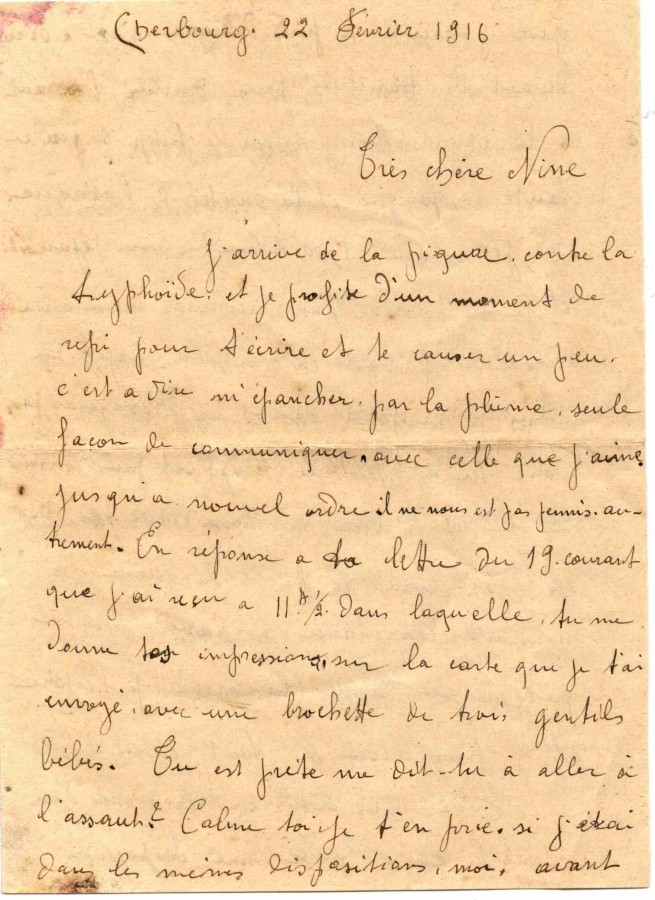 Cherbourg. 22 Février 1916
Très chère Ninne
J'arrive de la piqure. contre la
typhoïde. et je profite d'un moment de
repi pour t'écrire et te causer un peu.
c'est a dire m'épancher. par la plume. seule
façon de communiquer. avec celle que j'aime.
jusqu'a nouvel ordre il ne nous est pas permis. au-
trement. En réponse a ta lettre du 19. courant
que j'ai reçu a 11h ½. dans laquelle. tu me
donne tes impressions, sur la carte que je t'ai
envoyé. avec une brochette de trois gentils
bébés. Tu est prête me dit-tu à aller à
l'assaut? Calme toi je t'en prie. si j'étai
dans les mêmes dispositions, moi. avant